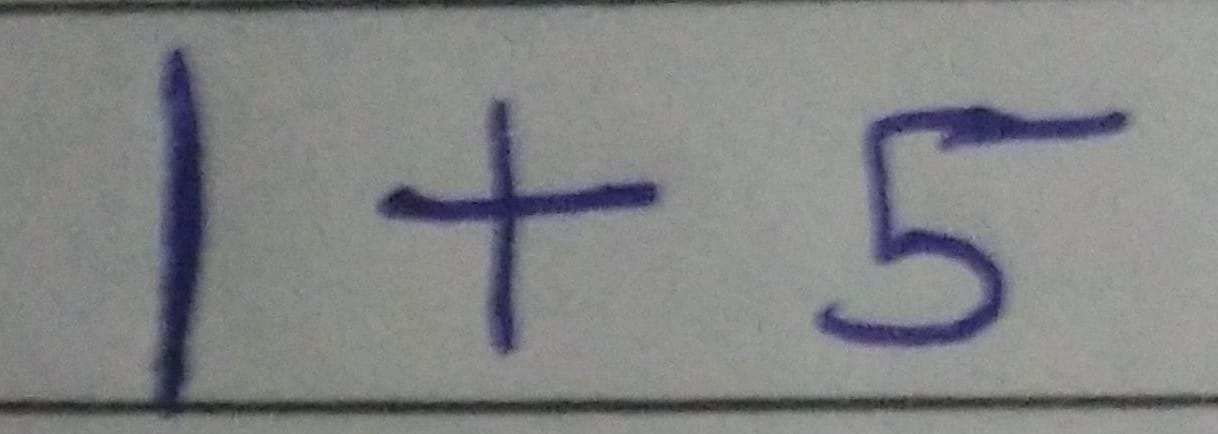 1 + 5